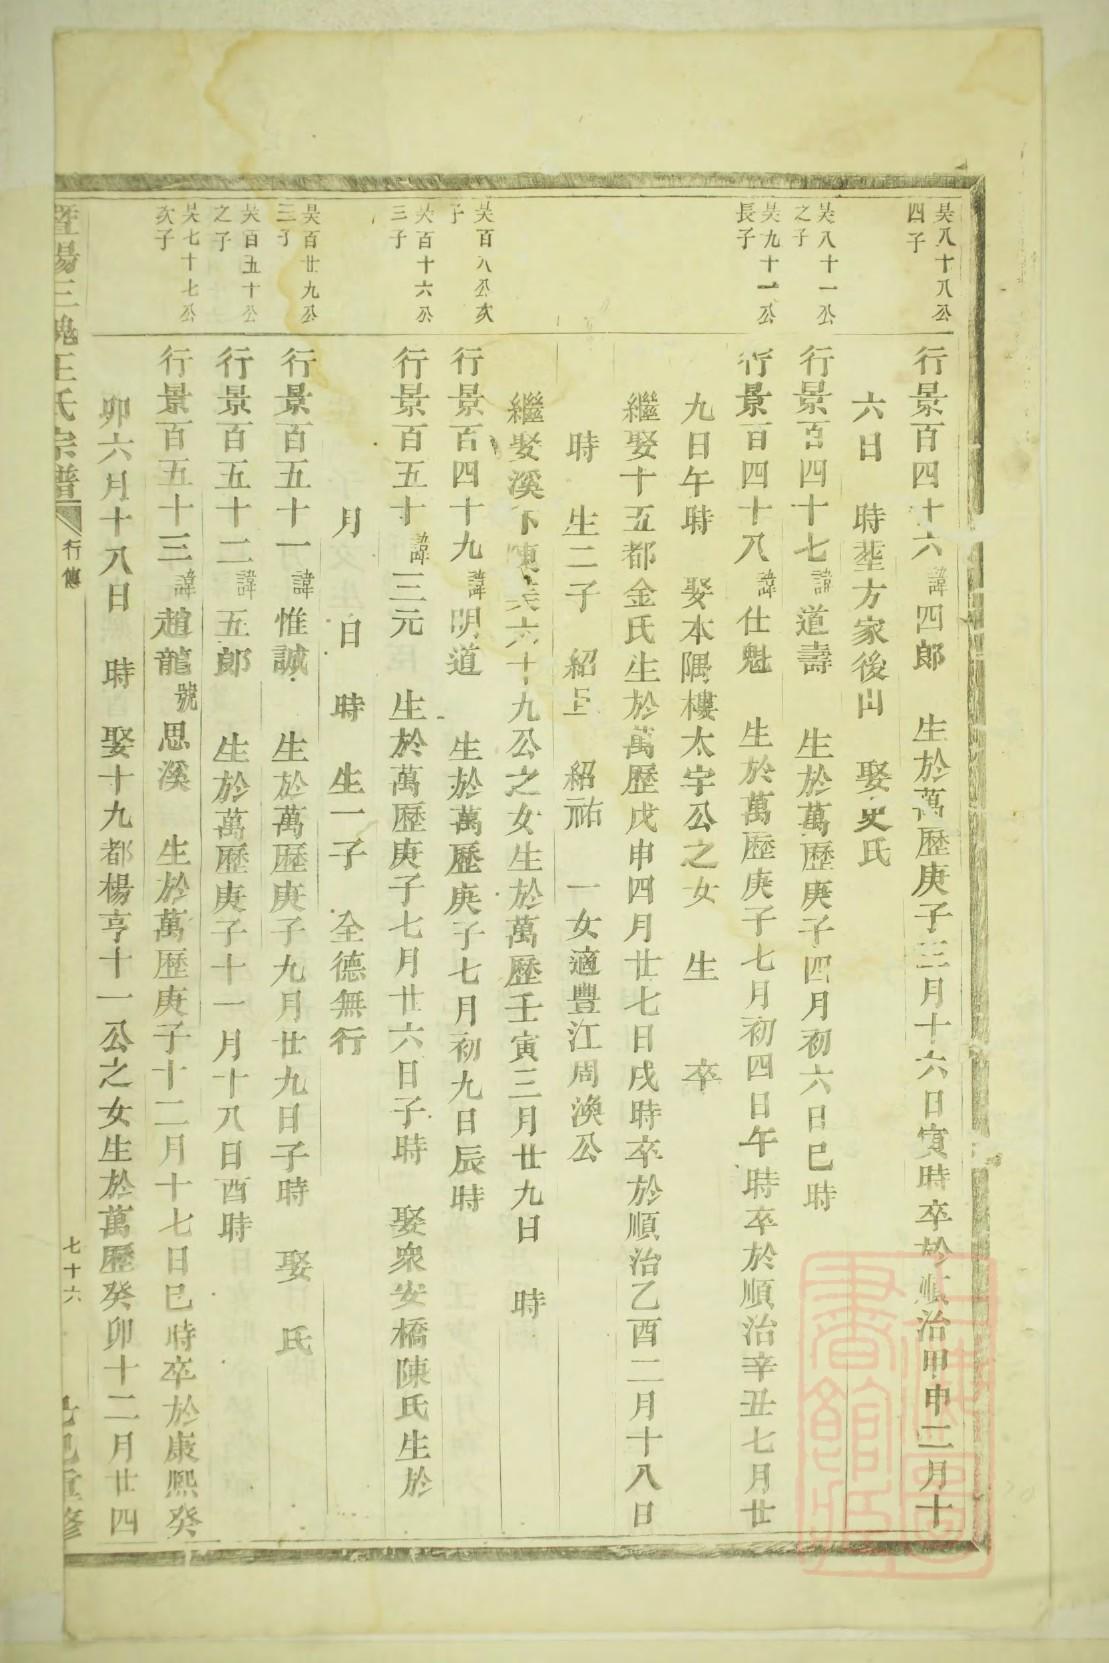 昊八十八公
四子
行景百四十六諱四郎 生於萬歷庚子三月十六日寅時卒於順治甲申二月十
六日 時塟方家後山 娶史氏
昊八十一公
之子
行景百四十七諱道壽 生於萬歷庚子四月初六日巳時
昊九十一公
長子
行景百四十八諱仕魁 生於萬歷庚子七月初四日午時卒於順治辛丑七月廿
九日午時 娶本隅樓太宇公之女 生 卒
繼娶十五都金氏生於萬歷戊申四月廿七日戌時卒於順治乙酉二月十八日
時 生二子 紹 紹祐 一女適豐江周渙公
繼娶溪下陳 六十九公之女生於萬歷壬寅三月廿九日 時
昊百八公次
子
行景百四十九諱明道 生於萬歷庚子七月初九日辰時
昊百十六公
三子
行景百五十諱三元 生於萬歷庚子七月廿六日子時 娶衆安橋陳氏生於
月 日 時 生一子 全德無行
昊百廿九公
三子
行景百五十一諱惟誠 生於萬歷庚子九月廿九日子時 娶 氏
昊百五十公
之子
行景百五十二諱五郎 生於萬歷庚子十一月十八日酉時
昊七十七公
次子
行景百五十三諱趙龍號思溪 生於萬歷庚子十二月十七日巳時卒於康熙癸
卯六月十八日 時 娶十九都楊亨十一公之女生於萬歷癸卯十二月廿四
暨陽三槐王氏宗譜 行傳 七十六 重修